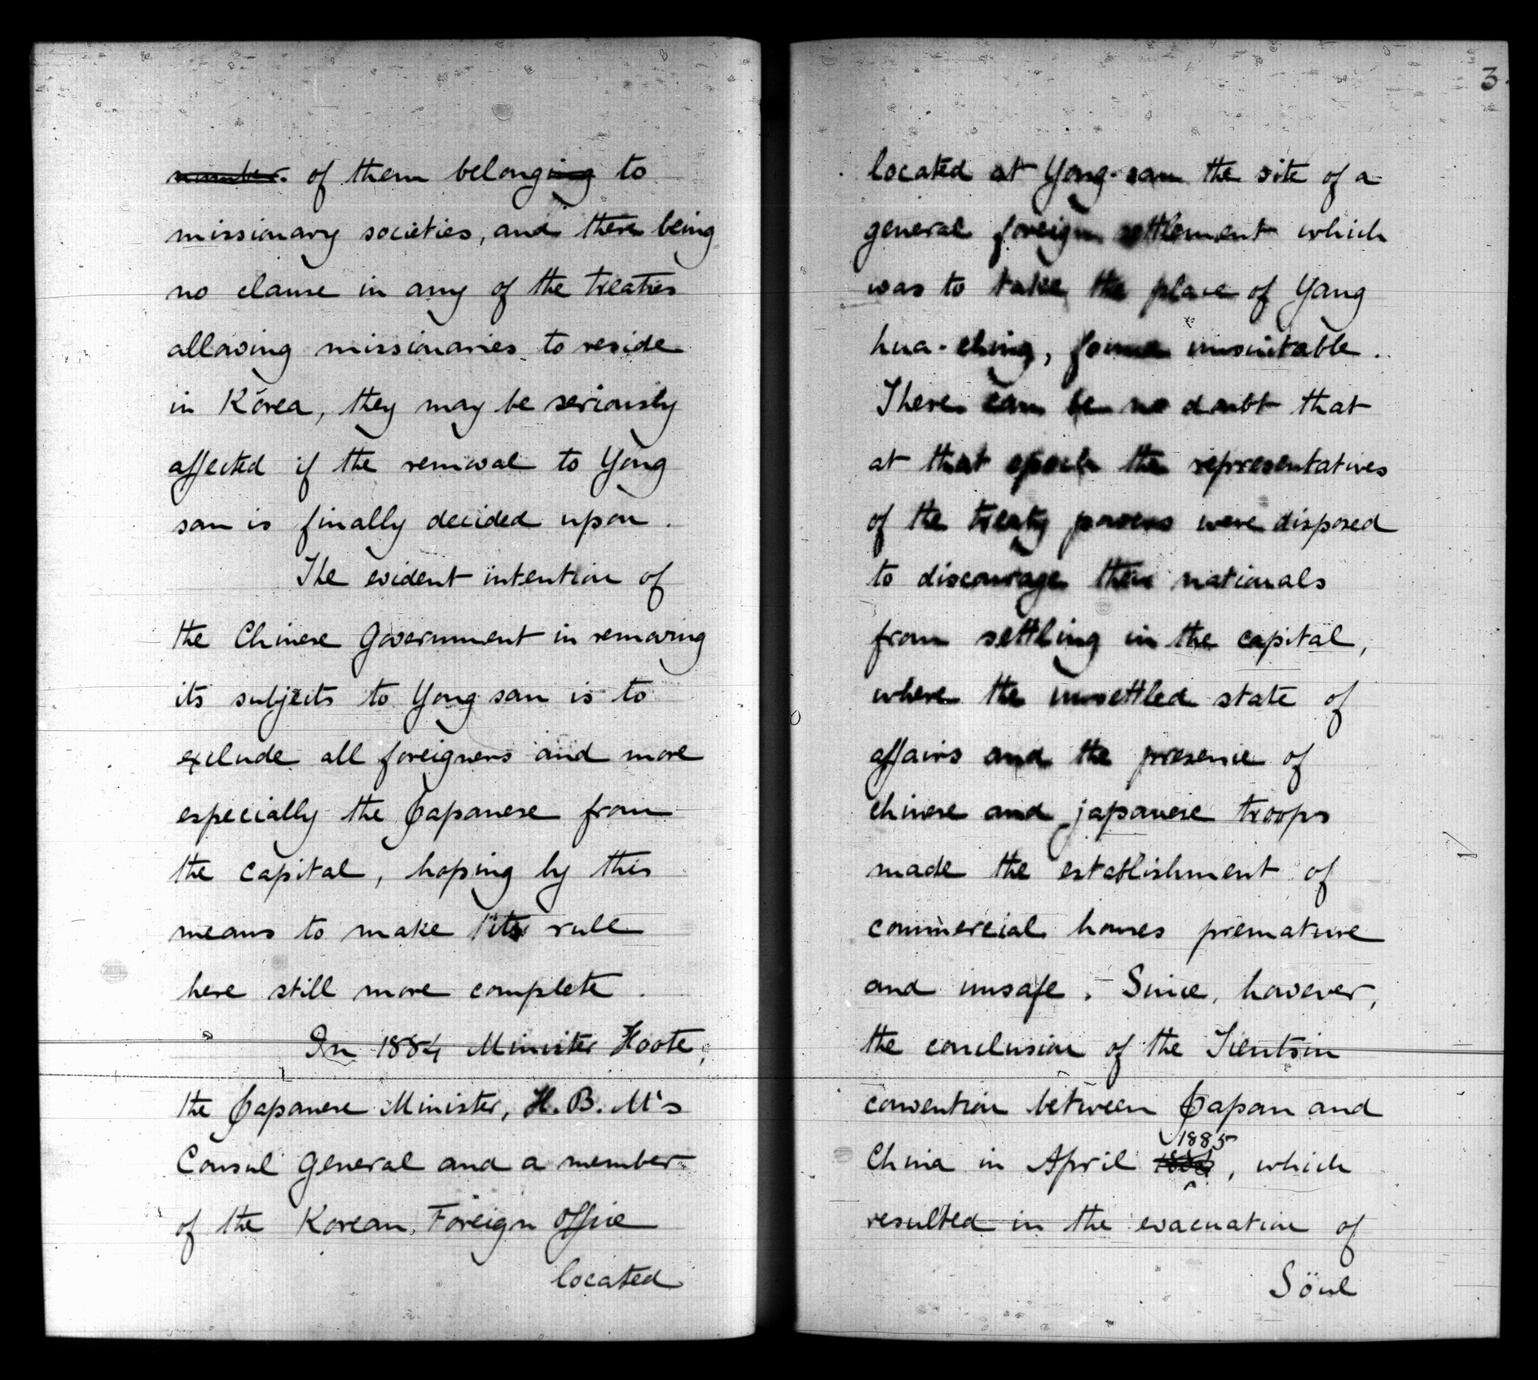 number of them belonging to
missionary societies, and there being
no clause in any of the treaties
allowing missionaries to reside
in Korea, they may be seriously
affected if the removal to Yong
san is finally decided upon.
The evident intention of
the Chinese Government in removing
its subjects to Yong san is to
exclude all foreigners and more
especially the Japanese from
the capital, hoping by this
means to make its rule
here still more complete.
In 1884 Minister Foote,
the Japanese Minister, H.B.M's
Consul General and a member
of the Korean Foreign Office
located
3.
located at Yong-san the site of a
general foreign settlement which
was to take the place of Yang
hua-ching, found unsuitable.
There can be no doubt that
at that epoch the representatives
of the treaty powers were disposed
to discourage their nationals
from settling in the capital,
where the unsettled state of
affairs and the presence of
chinese and japanese troops
made the establishment of
commercial houses premature
and unsafe. Since, however,
the conclusion of the Tientsin
convention between Japan and
1885
China in April , which
resulted in the evacuation of
Söul